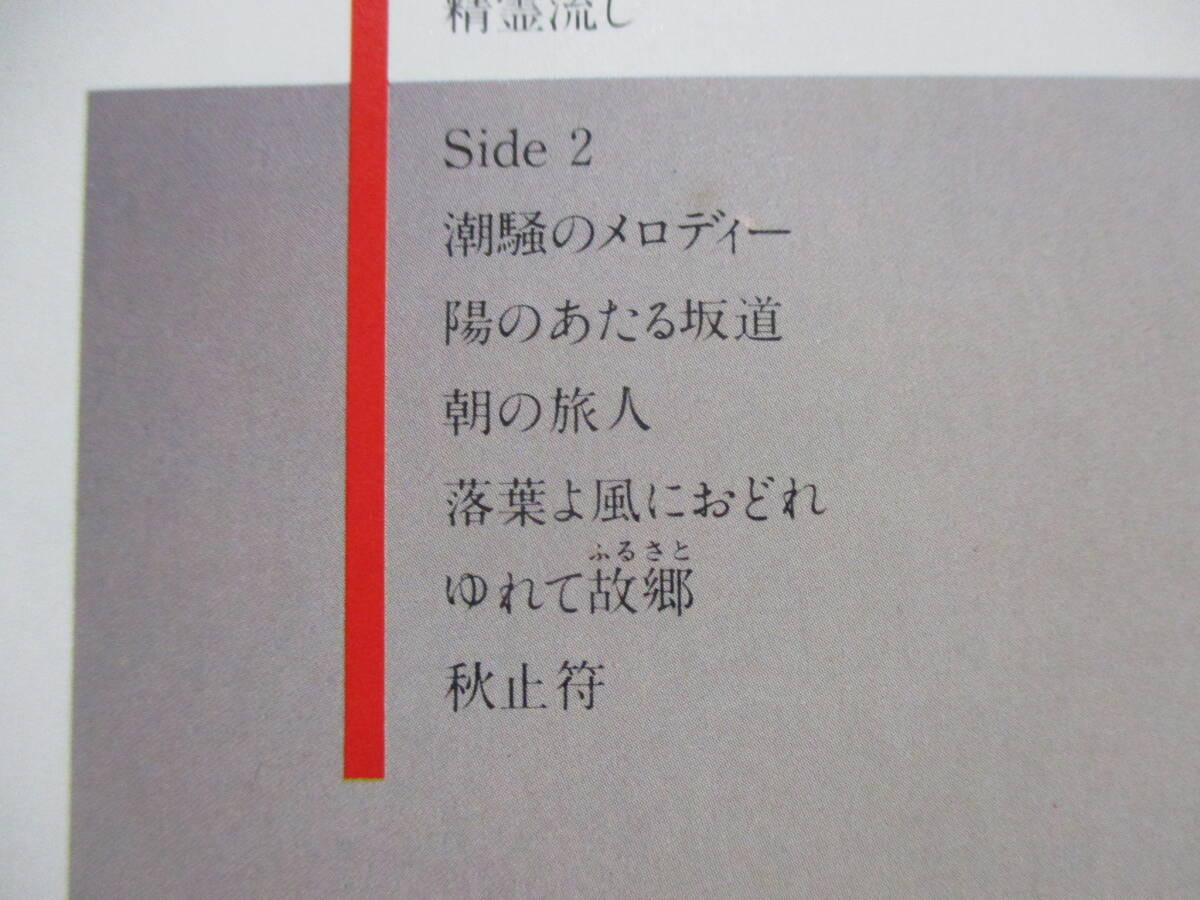 精霊流し
Side 2
潮騒のメロディー
陽のあたる坂道
朝の旅人
落葉よ風におどれ
ふるさと
ゆれて故郷
秋止符